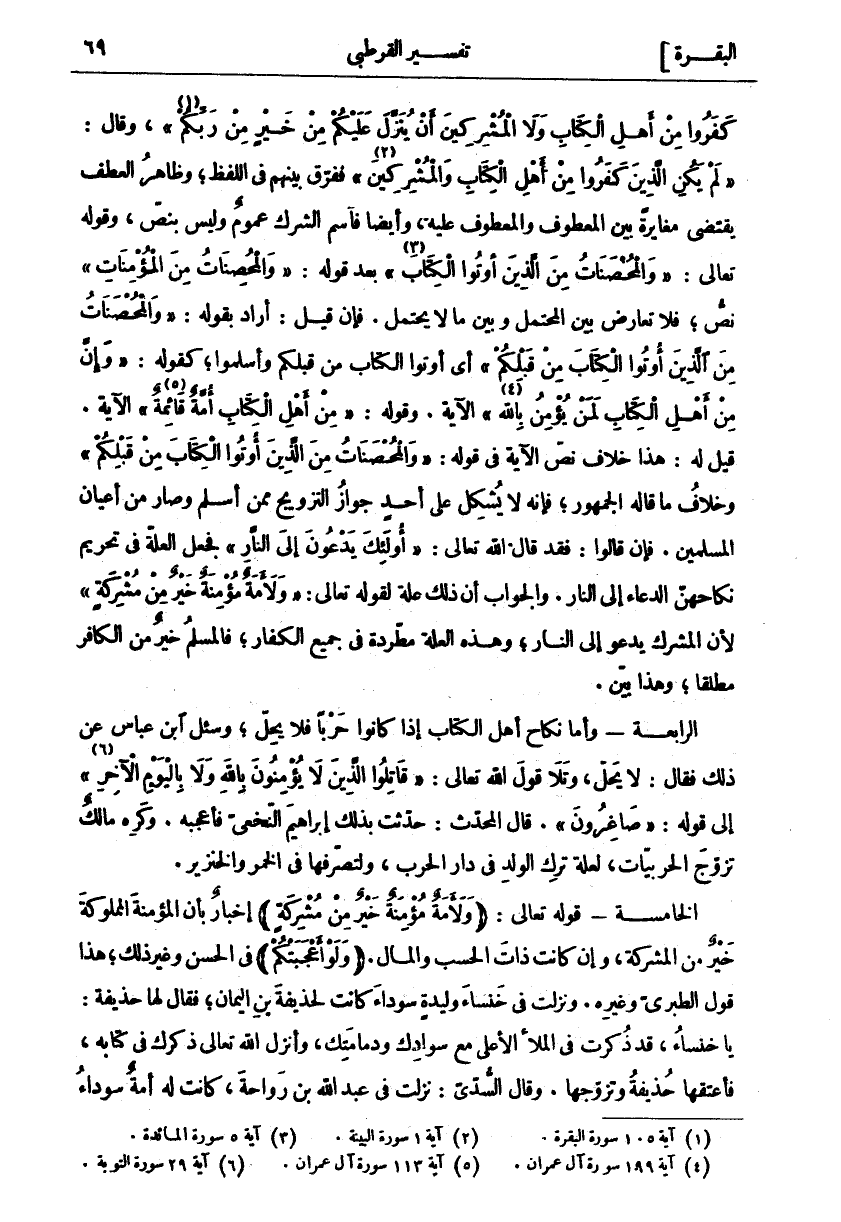 البقــرة ]
تفســير القرطبي
٦٩
كَفَرُوا مِنْ أَهــلِ الْكِتَابِ وَلَا الْمُشْرِكِينَ أَنْ يُنَزَّلَ عَلَيْكُمْ مِنْ خَــيْرٍ مِنْ رَبِّكُمْ (١) » ، وقال :
« لَمْ يَكُنِ الَّذِينَ كَفَرُوا مِنْ أَهْلِ الْكِتَابِ وَالْمُشْرِكِينَ (٢) » ففرّق بينهم فى اللفظ ؛ وظاهرُ العطف
يقتضى مغايرةً بين المعطوف والمعطوف عليه ، وأيضا فآسم الشرك عمومٌ وليس بنصّ ، وقوله
تعالى : « وَالْمُحْصَنَاتُ مِنَ الَّذِينَ أوتُوا الْكِتَابَ (٣) » بعد قوله : « وَالْمُحْصِنَاتُ مِنَ الْمُؤْمِنَاتِ »
نصٌّ ؛ فلا تعارض بين المحتمل وبين ما لا يحتمل . فإن قيــل : أراد بقوله : « وَالْمُحْصَنَاتُ
مِنَ ٱلَّذِينَ أُوتُوا الْكِتَابَ مِنْ قَبْلِكُمْ » أى أوتوا الكتاب من قبلكم وأسلموا ؛ كقوله : « وَإِنَّ
مِنْ أَهْــلِ الْكِتَابِ لَمَنْ يُؤْمِنُ بِاللهِ (٤) » الآية . وقوله : « مِنْ أَهْلِ الْكِتَابِ أُمَّةٌ قَائِمَةٌ (٥) » الآية .
قيل له : هذا خلاف نصّ الآية فى قوله : « وَالْمُحْصَنَاتُ مِنَ الَّذِينَ أُوتُوا الْكِتَابَ مِنْ قَبْلِكُمْ »
وخلافُ ما قاله الجمهور ؛ فإنه لا يُشكِل على أحــدٍ جوازُ التزويج ممن أســلم وصار من أعيان
المسلمين . فإن قالوا : فقد قال الله تعالى : « أُولَئِكَ يَدْعُونَ إِلَى النَّارِ » فجعل العلّة فى تحريم
نكاحهنّ الدعاء إلى النار . والجواب أن ذلك علة لقوله تعالى : « وَلَأَمَةٌ مُؤْمِنَةٌ خَيْرٌ مِنْ مُشْرِكَةٍ »
لأن المشرك يدعو إلى النــار ؛ وهــذه العلة مطّردة فى جميع الكفار ؛ فالمسلمُ خيرٌ من الكافر
مطلقا ؛ وهذا بيّن .
الرابعــة — وأما نكاح أهل الكتاب إذا كانوا حَرْباً فلا يحِلّ ؛ وسئل آبن عباس عن
ذلك فقال : لا يَحلّ ، وتَلَا قولَ الله تعالى : « قَاتِلُوا الَّذِينَ لَا يُؤْمِنُونَ بِاللهِ وَلَا بِالْيَوْمِ الْآخِرِ (٦) »
إلى قوله : « صَاغِرُونَ » . قال المحدّث : حدّثت بذلك إبراهيمَ النَّخعىّ فأعجبه . وكَرِه مالكٌ
تزوّجَ الحربيّات ، لعلة ترك الولد فى دار الحرب ، ولتصرّفها فى الخمر والخنزير .
الخامســة — قوله تعالى : ﴿ وَلَأَمَةٌ مُؤْمِنَةٌ خَيْرٌ مِنْ مُشْرِكَةٍ ﴾ إخبارٌ بأن المؤمنةَ المملوكةَ
خيْرٌ من المشركة ، وإن كانت ذاتَ الحسب والمــال . ﴿ وَلَوْ أَعْجَبَتْكُمْ ﴾ فى الحسن وغير ذلك ؛ هذا
قول الطبرىّ وغيره . ونزلت فى خَنساءَ وليدةٍ سوداءَ كانت لحذيفةَ بن اليمان ؛ فقال لها حذيفة :
يا خنساءُ ، قد ذُكرتِ فى الملأ الأعلى مع سوادك ودمامتِك ، وأنزل الله تعالى ذكركِ فى كتابه ،
فأعتقها حُذيفةُ وتزوّجها . وقال السُّدّىّ : نزلت فى عبد الله بن رَواحة ، كانت له أمةٌ سوداءُ
(١) آية ١٠٥ سورة البقرة . (٢) آية ١ سورة البينة . (٣) آية ٥ سورة المــائدة .
(٤) آية ١٩٩ سورة آل عمران . (٥) آية ١١٣ سورة آل عمران . (٦) آية ٢٩ سورة التوبة .